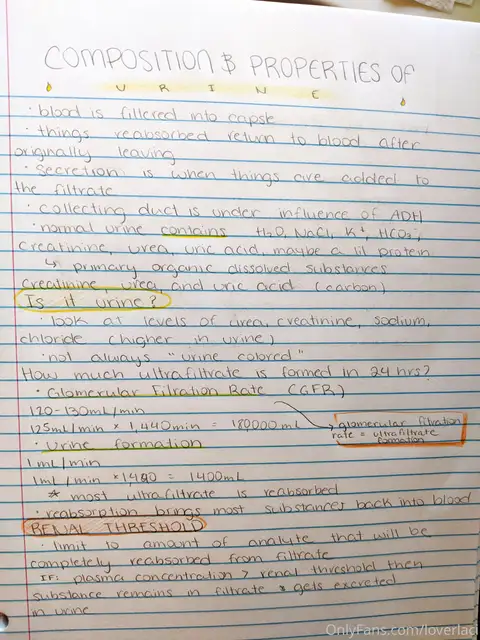 COMPOSITION & PROPERTIES OF
URINE
· blood is filtered into capsle
· things reabsorbed return to blood after
originally leaving
· secretion is when things are added to
the filtrate
· collecting duct is under influence of ADH
· normal urine contains H₂O, NaCl, K⁺, HCO₃⁻,
creatinine, urea, uric acid, maybe a lil protein
↳ primary organic dissolved substances
creatinine urea, and uric acid (carbon)
Is it urine?
· look at levels of urea, creatinine, sodium,
chloride (higher in urine)
· not always "urine colored"
How much ultrafiltrate is formed in 24 hrs?
· Glomerular Filtration Rate (GFR)
120-130mL/min
125mL/min × 1,440min = 180000 mL
glomerular filtration
rate = ultrafiltrate
formation
· Urine formation
1 mL/min
1mL/min × 1440 = 1400mL
* most ultrafiltrate is reabsorbed
· reabsorption brings most substances back into blood
RENAL THRESHOLD
· limit to amount of analyte that will be
completely reabsorbed from filtrate
IF: plasma concentration > renal threshold then
substance remains in filtrate & gets excreted
in urine
OnlyFans.com/loverlaci